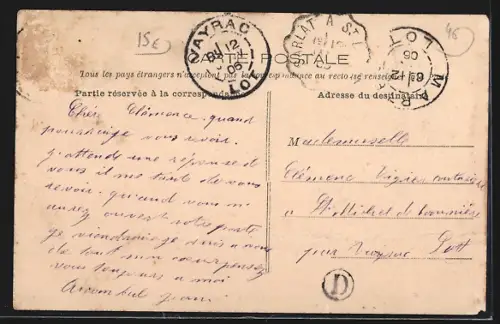 15€
45
VAYRAC
12
05
LOT
SARLAT A ST
MAR
LOT
12
05
CARTE POSTALE
Tous les pays étrangers n'acceptent pas la correspondance au recto (se renseigner
Partie réservée à la correspondance
Adresse du destinataire
Chér Clémence quand
pourrai je vous revoir.
j'attends une reponse de
vous il me tard de vous
revoir. quand vous m
aurez ouvert votre porte
je viendrai
de tout mon coeur pensez
vous toujours a moi
jeani
Mademoiselle
Clémence Vigié couturière
a St Michel de Bannières
par Vayrac Lot
D